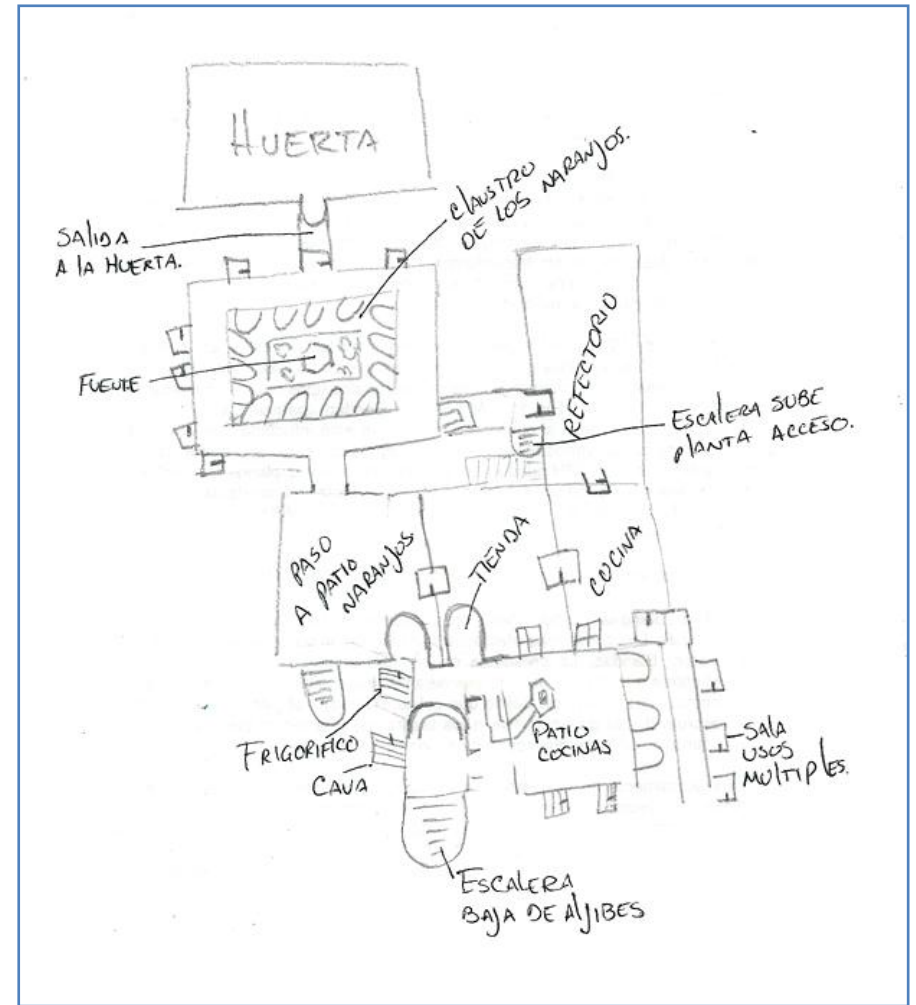 HUERTA
CLAUSTRO
DE LOS NARANJOS.
SALIDA
A LA HUERTA.
FUENTE
REFECTORIO
ESCALERA SUBE
PLANTA ACCESO.
PASO
A PATIO
NARANJOS.
TIENDA
COCINA
FRIGORIFICO
CAVA
PATIO
COCINAS
SALA
USOS
MULTIPLES.
ESCALERA
BAJA DE ALJIBES